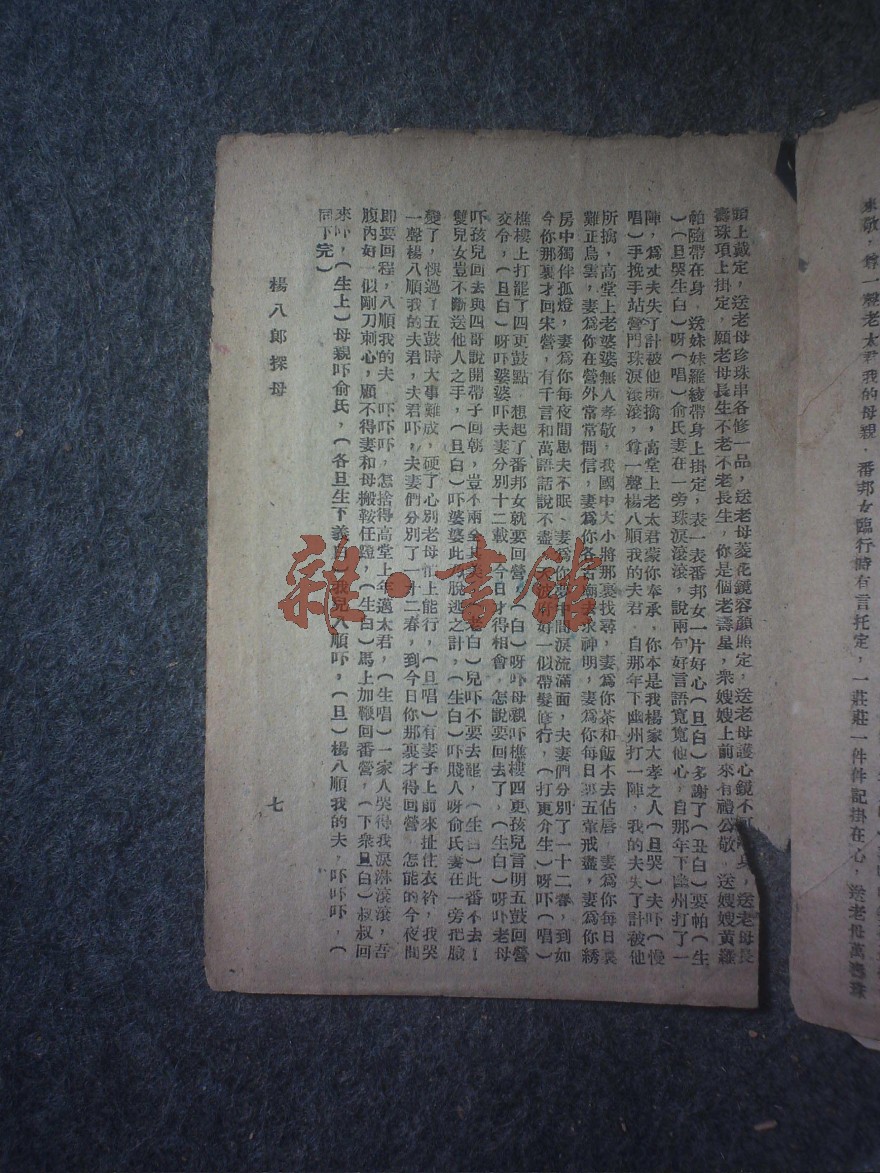 來敬，尊一聲老太君我的母親，番邦女臨行時有言托定，一莊莊一件件記掛在心，送老母萬壽珠
頭上戴定，送老母珍珠串各修一品，送老母菱花鏡容顏照定，送老母護心鏡不，送老母長
壽珠項上掛定，願老母長生不老不老長生，你是個老壽星，衆嫂嫂上前來有禮公敬，送嫂嫂黃羅
帕隨帶在身，送妹妹羅綾帶身上掛定，表一表番邦女一片好心（旦白）多謝了（丑白）要帕（生
）（旦哭生白）呀（唱）俞氏妻在一旁珠淚滾滾，說兩句好言語寬寬他心，自那年下幽州打了一
陣，爲丈夫失了計被他所擒，高堂上老太君蒙你奉承，你本是我楊家大孝之人（旦哭）夫吓（慢
唱）手挽手站營門珠淚滾滾，尊一聲楊八順我的夫君，自那年下幽州打一陣，我的夫失了計被他
所擒，高堂上老婆婆無人孝敬，我國中大小將那裏找尋，妻爲你茶和飯不去佔唇，妻爲你每日裏
難正烏雲，妻爲你在營外常常問信，妻爲你各名廟去求神明，妻爲你每日 五葷戒盡，妻爲你綉
房中獨伴孤燈，妻爲你每夜間思夫不眠、妻爲你 間淚流滿面，夫妻們分別了一十二春，到如
今你那裏才回宋營，有千言和萬語話說不盡， 好一似帶髮修行，（打更介生）呀吓（唱）
樵樓上打罷了四更鼓點，想起了番邦女就要回營，（白）呀吓母親吓樵樓四更孩兒言明五鼓回營
交令，（旦白）呀吓婆婆吓夫妻分別十二載，今日才得相會，怎說要回去了，（生白）呀吓老母
吓孩兒回去與四哥說開帶子回朝，豈不兩全其美（老白）兒吓不要去罷，（生白）此番不去一
雙兒女豈不斷送他人之手，（旦白）吓婆婆此 脫逃之計，（生白）吓賤人呀俞氏妻在一旁把臉
變了，悞過了五鼓時大事難成，硬了心別老母 上能行，（旦唱）有妻子上前來扯住衣衿，我哭
一聲楊八順我的夫君，夫君吓，夫妻們分別了一十二春，到今日你那裏才得回營，怎能的今夜間
即要回程，八順我的夫，吓吓吓，怎捨得高堂上年邁太君，（生唱）一家人哭得我淚淋滾滾，吾
腹內好一似剛刀刺心，顧不得妻和母搬鞍任蹬，（生白）馬上加鞭回番營，（下衆旦白）叔叔回
來吓，（生上）母親吓俞氏，（各旦生下義白）我兒八順吓，（旦）楊八順我的夫，吓吓吓，（
同下完）
楊八郎探母
七
雜·書館